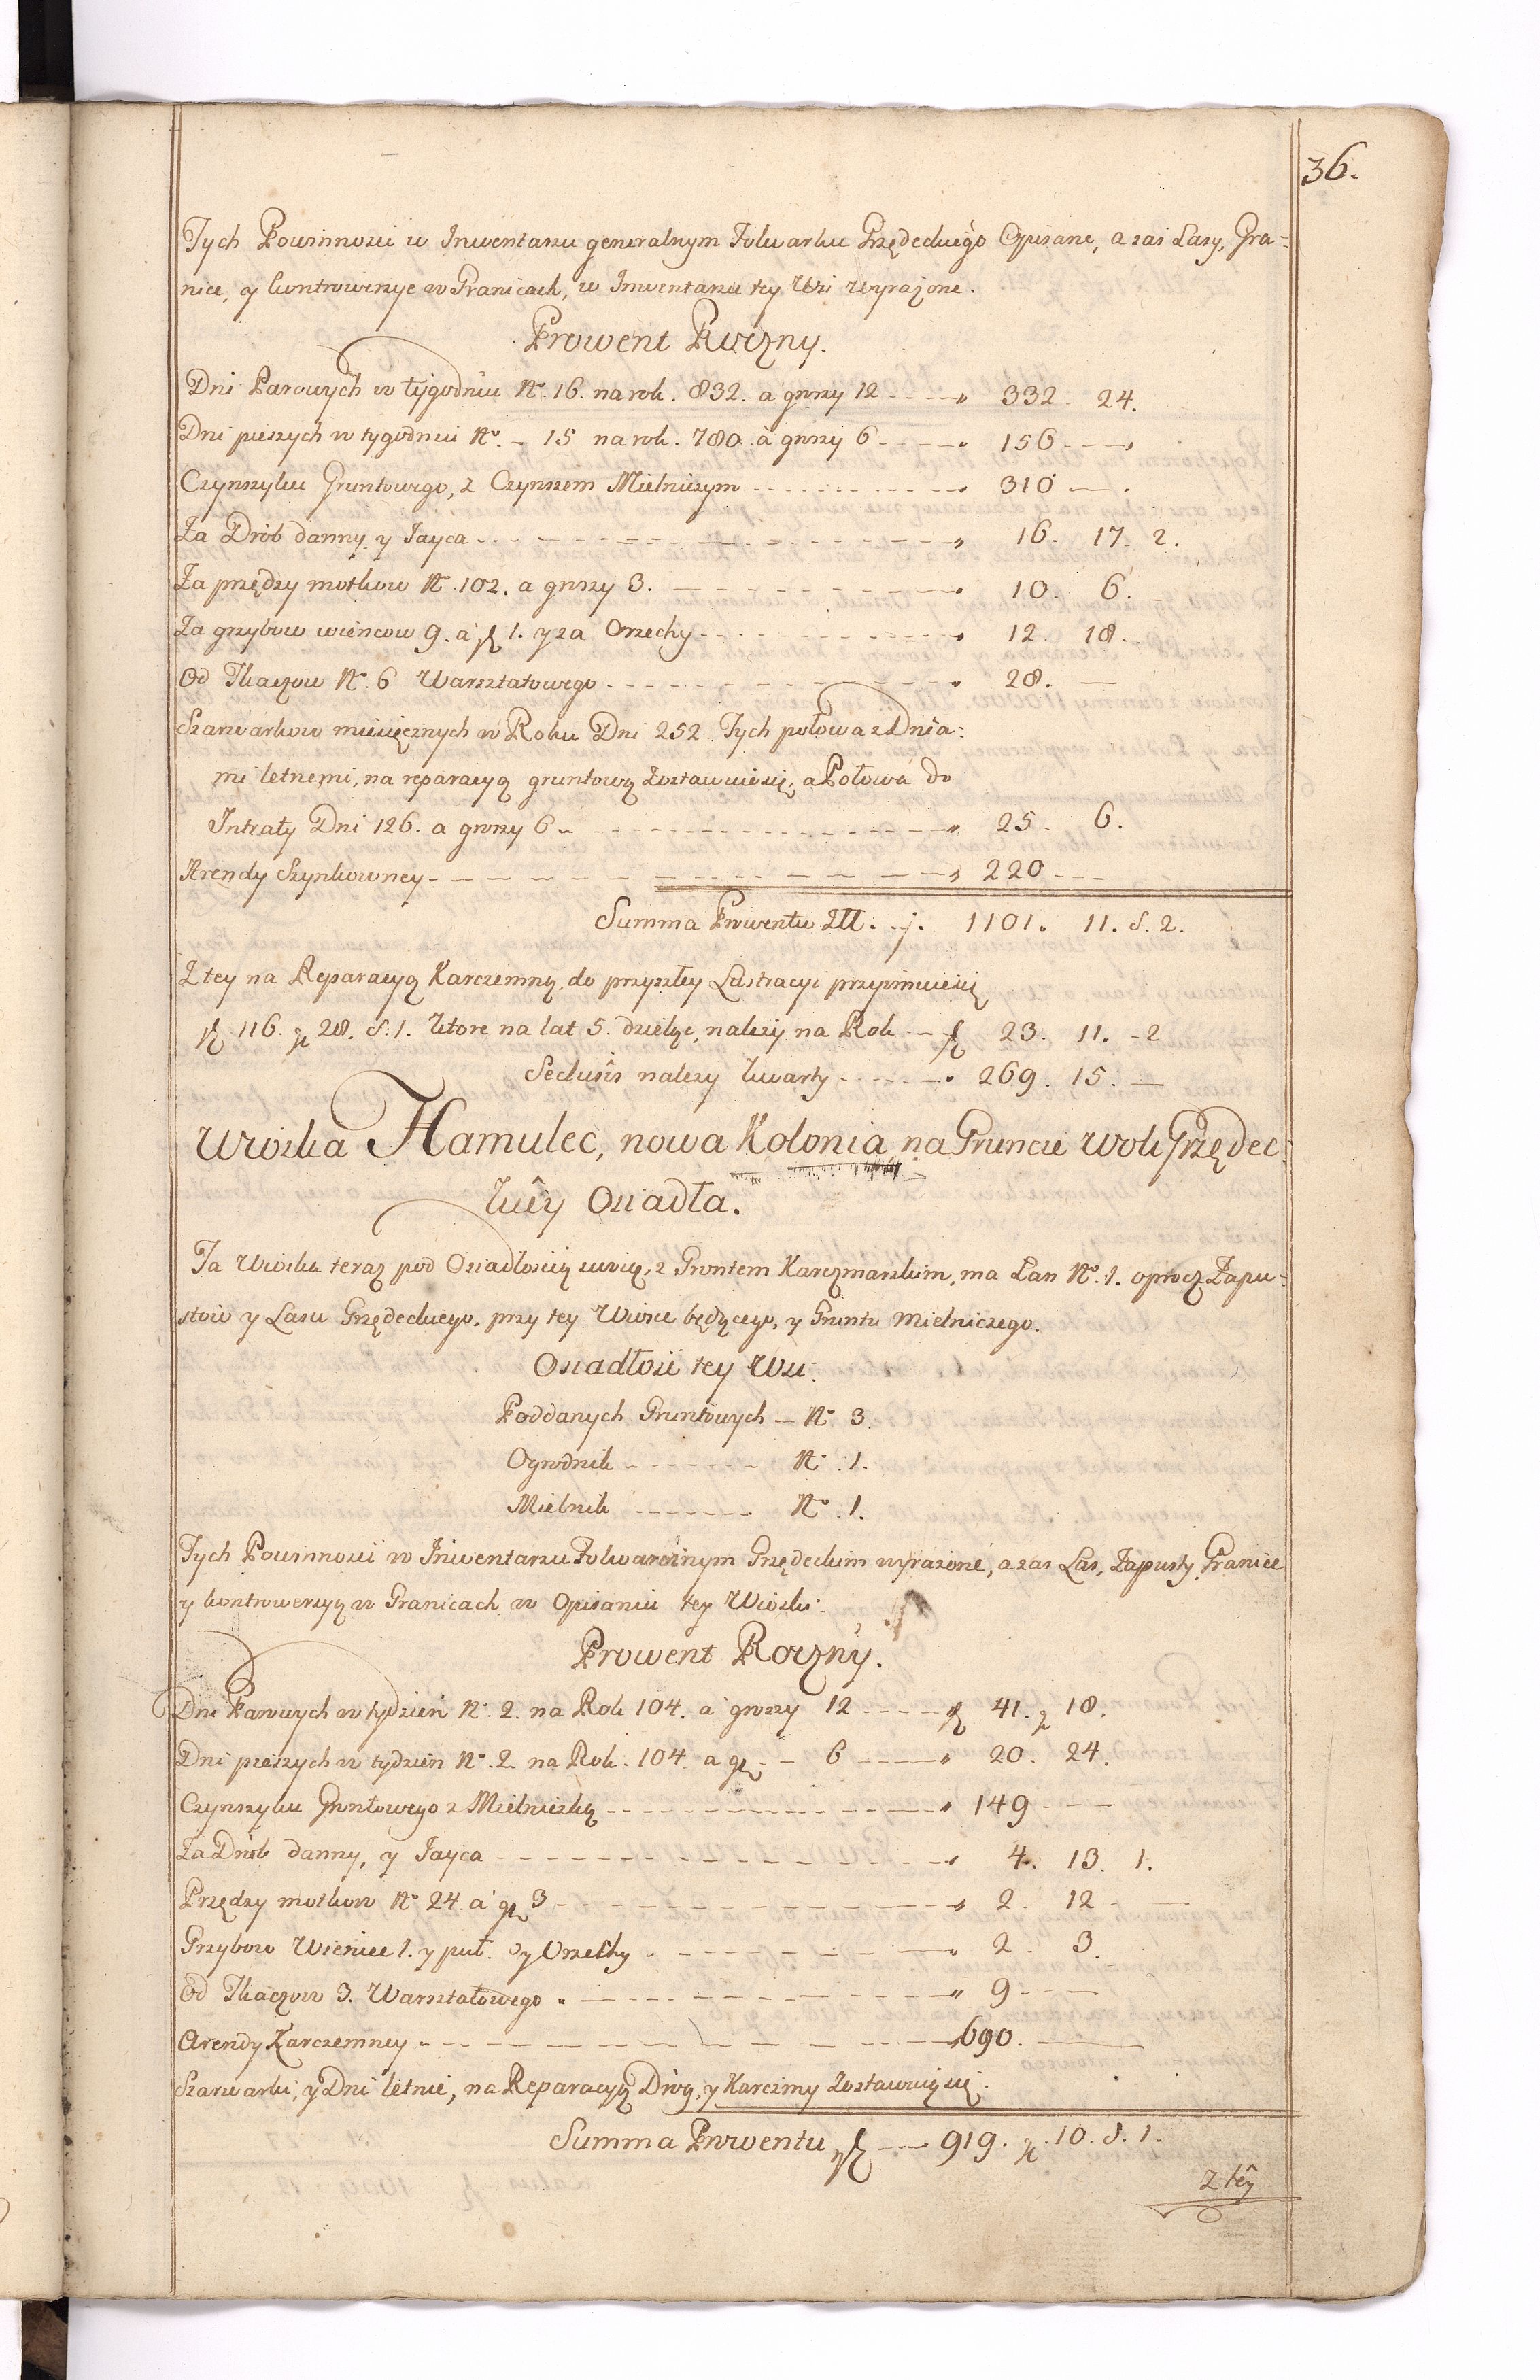 36.
Tych Powinnosci w Inwentarzu generalnym Folwarku Grzędeckiego Opisane, a zas Lasy, Gra-
nice, y kontrowersye w Granicach, w Inwentarzu tey Wsi wyrażone.
Prowent Roczny.
Dni Parowych w tygodniu No. 16. na rok. 832. a groszy 12 332 24.
Dni pieszych w tygodniu No. 15 na rok. 780. a groszy 6 156
Czynszyku Gruntowego, z Czynszem Mielniczym 310
Za Drob danny y Jayca 16. 17. 2.
Za przędzy motkow No. 102. a groszy 3. 10. 6.
Za grzybow wiencow 9. a zł 1. y za Orzechy 12. 18.
Od Tkaczow No. 6 Warsztatowego 28.
Szarwarkow miesięcznych w Roku Dni 252. Tych połowa z Dnia-
mi letnemi, na reparacyą gruntową zostawuie się, a Połowa do
Intraty Dni 126. a groszy 6 25. 6.
Arendy Szynkowney 220
Summa Prowentu Zł. 1101. 11. s. 2.
Z tey na Reparacyą Karczemną, do przyszley Lustracyi przyimuie się
zł 116. gr 28. s. 1. ktore na lat 5. dzieląc, nalezy na Rok zł 23. 11. 2
Seclusis nalezy kwarty 269. 15.
Wioska Hamulec, nowa Kolonia na Gruncie Woli Grzędec-
kiey Osiadła.
Ta Wioska teraz pod Osiadłoscią swoią, z Gruntem Karczmarskim, ma Łan No. 1. oprocz Zapu-
stow y Lasu Grzędeckiego, przy tey Wiosce będącego, y Gruntu Mielniczego.
Osiadłosc tey Wsi.
Poddanych Gruntowych No. 3.
Ogrodnik No. 1.
Mielnik No. 1.
Tych Powinnosci w Inwentarzu Folwarcznym Grzędeckim wyrazone, a zas Las, Zapusty, Granice
y kontrowersye w Granicach w Opisaniu tey Wioski.
Prowent Roczny.
Dni Parowych w tydzien No. 2. na Rok 104. a groszy 12 zł 41. gr 18.
Dni pieszych w tydzien No. 2. na Rok. 104. a gr 6 20. 24.
Czynszyku Gruntowego z Mielniczką 149
Za Drob danny, y Jayca 4. 13. 1.
Przędzy motkow No 24. a gr 3 2. 12
Grzybow Wieniec 1. y puł. y Orzechy 2. 3.
Od Tkaczow 3. Warsztatowego 9
Arendy Karczemney 690.
Szarwarki, y Dni letnie, na Reparacyą Drog, y Karczmy zostawuią się.
Summa Prowentu zł 919. gr. 10. s. 1.
Z tey